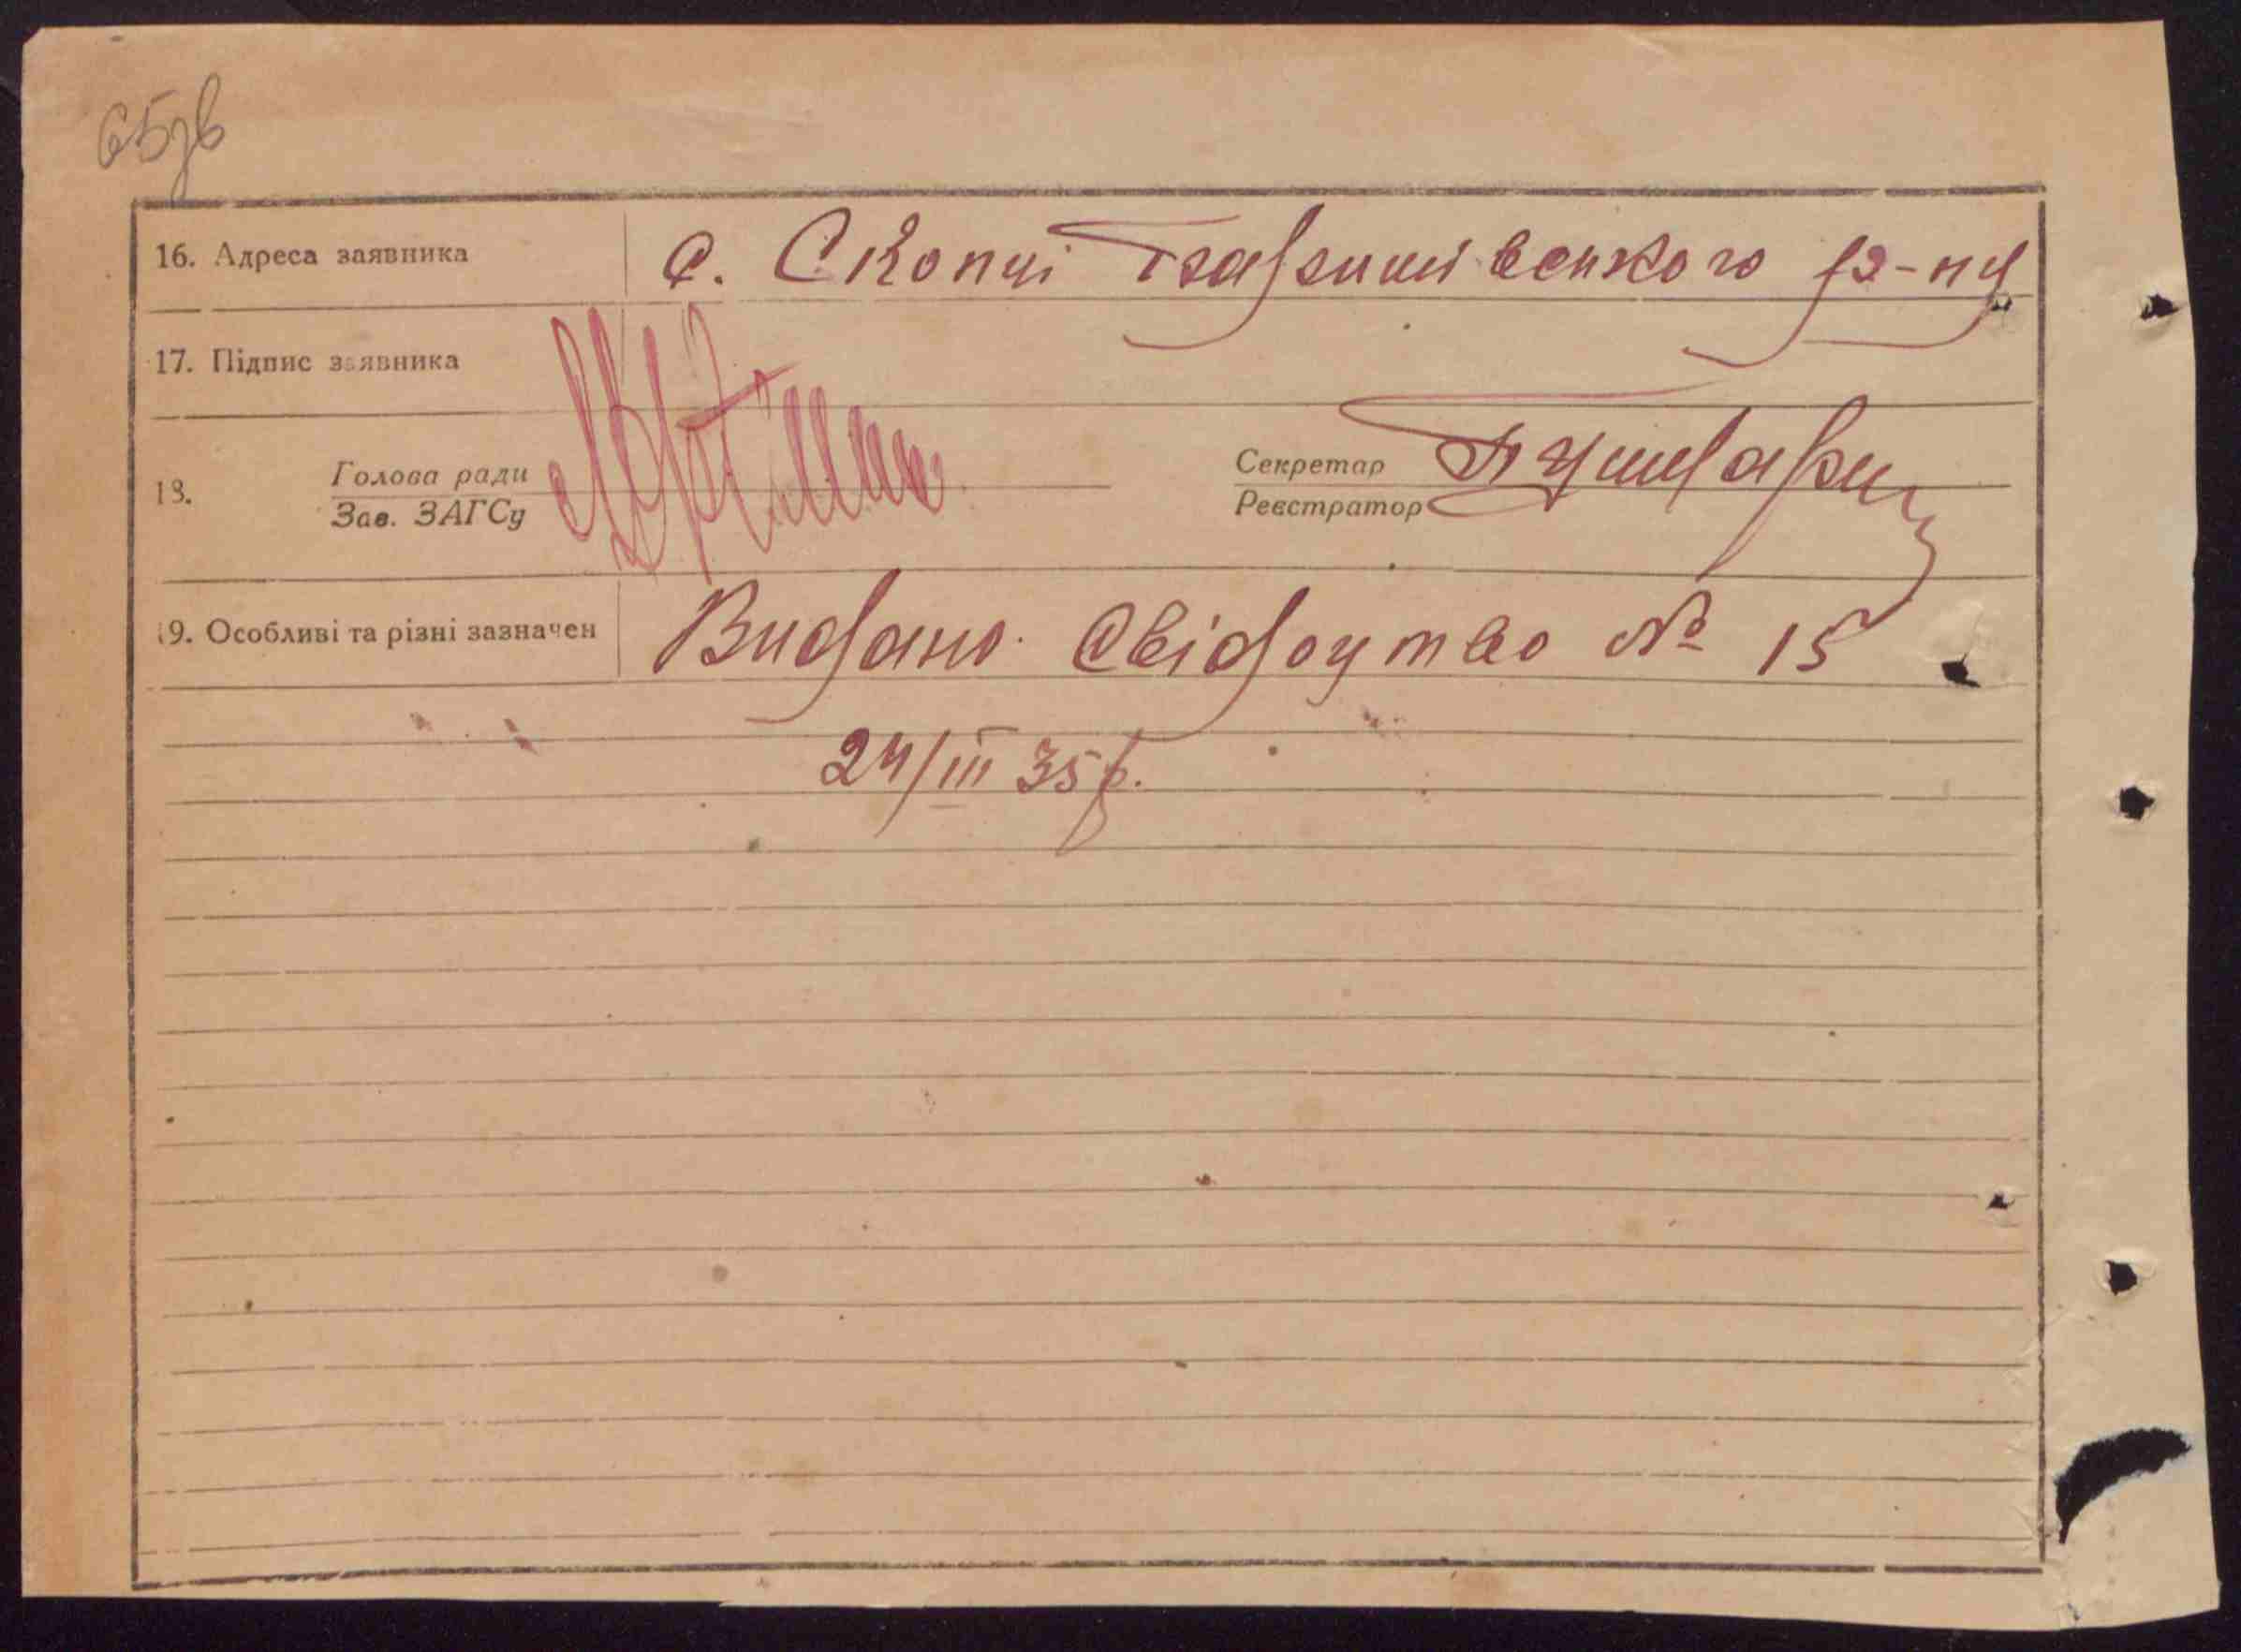 65зв
16. Адреса заявника с. Скопці Баришівського р-ну
17. Підпис заявника
18. Голова ради Секретар
Зав. ЗАГСу Реєстратор
19. Особливі та різні зазначен Видано свідоцтво № 15
24/III 35 р.